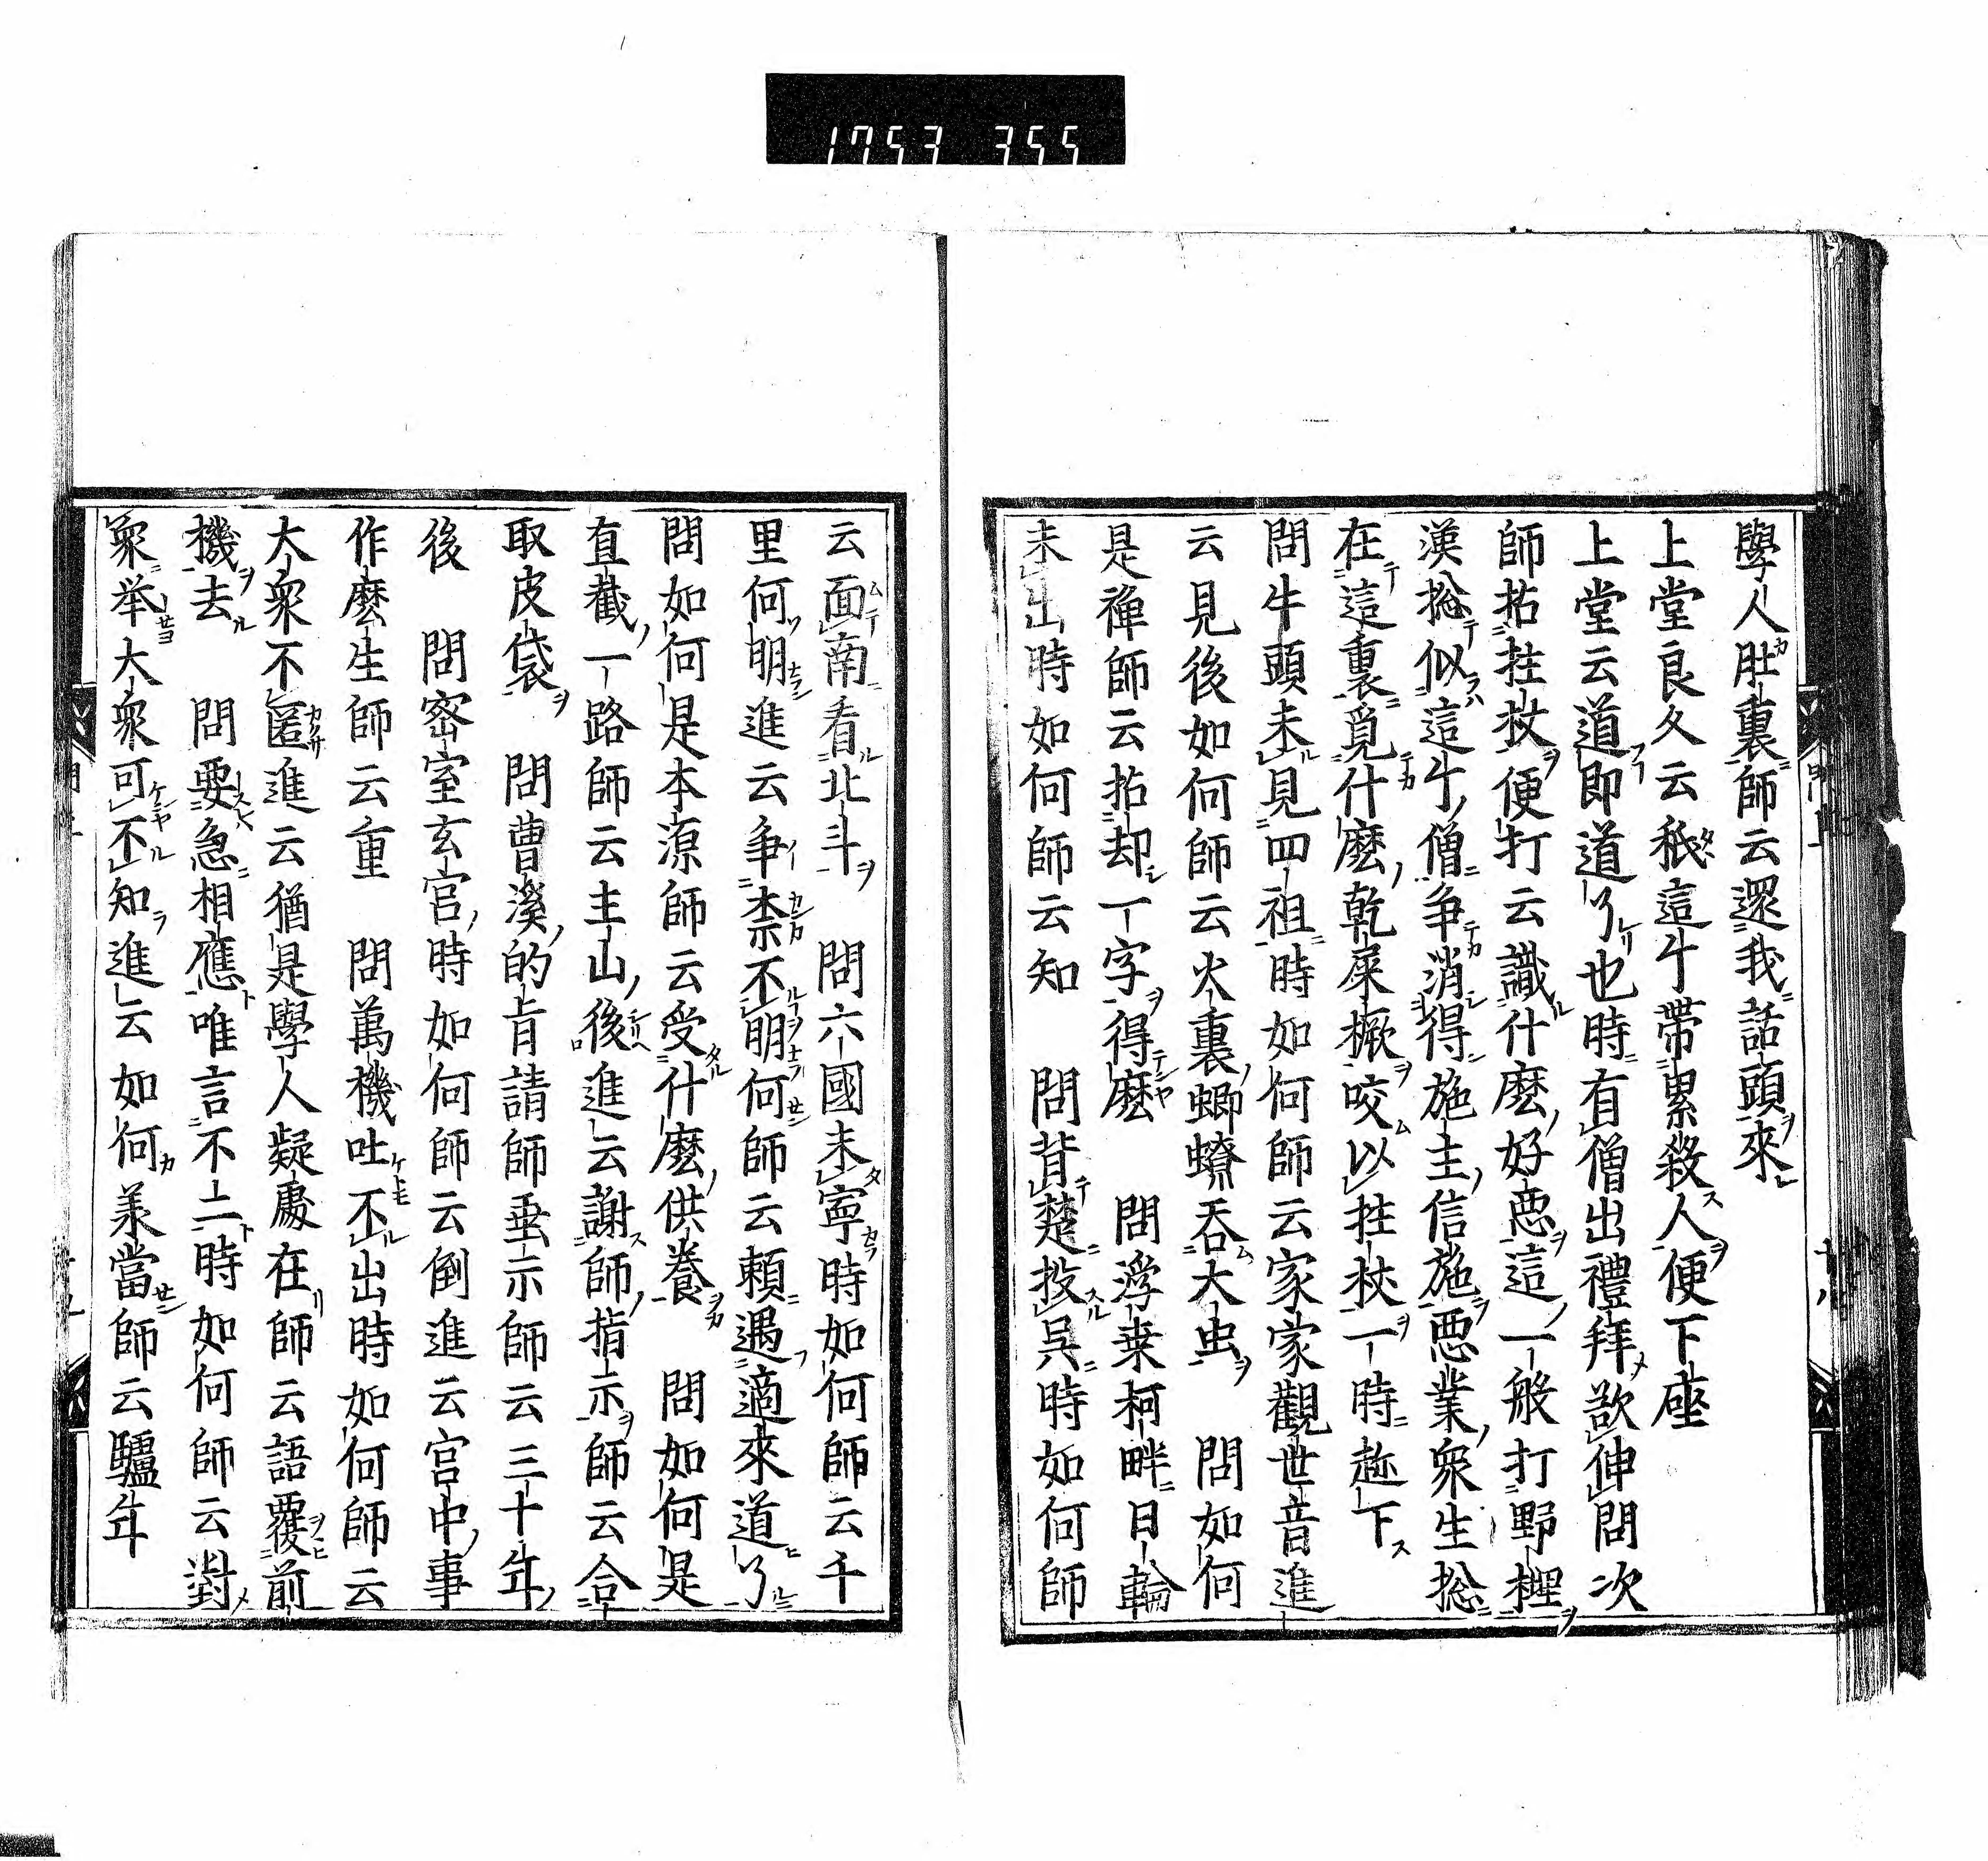 1753 355
學人肚裏師云還我話頭來
上堂良久云秖這个帶累殺人便下座
上堂云道即道了也時有僧出禮拜欲伸問次
師拈拄杖便打云識什麼好惡這一般打野榸
漢捴似這个僧争消得施主信施惡業衆生捴
在這裏覓什麼乾屎橛咬以拄杖一時趂下
問牛頭未見四祖時如何師云家家觀世音進
云見後如何師云火裏蝍蟟吞大虫　問如何
是禪師云拈却一字得麼　問滛桒柯畔日輪
未出時如何師云知　問背楚投吳時如何師
云面南看北斗　問六國未寧時如何師云千
里何明進云争柰不明何師云頼遇適來道了
問如何是本源師云受什麼供養　問如何是
直截一路師云主山後進云謝師指示師云合
取皮袋　問曹溪的旨請師垂示師云三十年
後　問宻室玄宫時如何師云倒進云宫中事
作麼生師云重　問萬機吐不出時如何師云
大衆不匿進云猶是學人疑處在師云語覆前
機去　問要急相應唯言不二時如何師云對
衆举大衆可不知進云如何兼當師云驢年